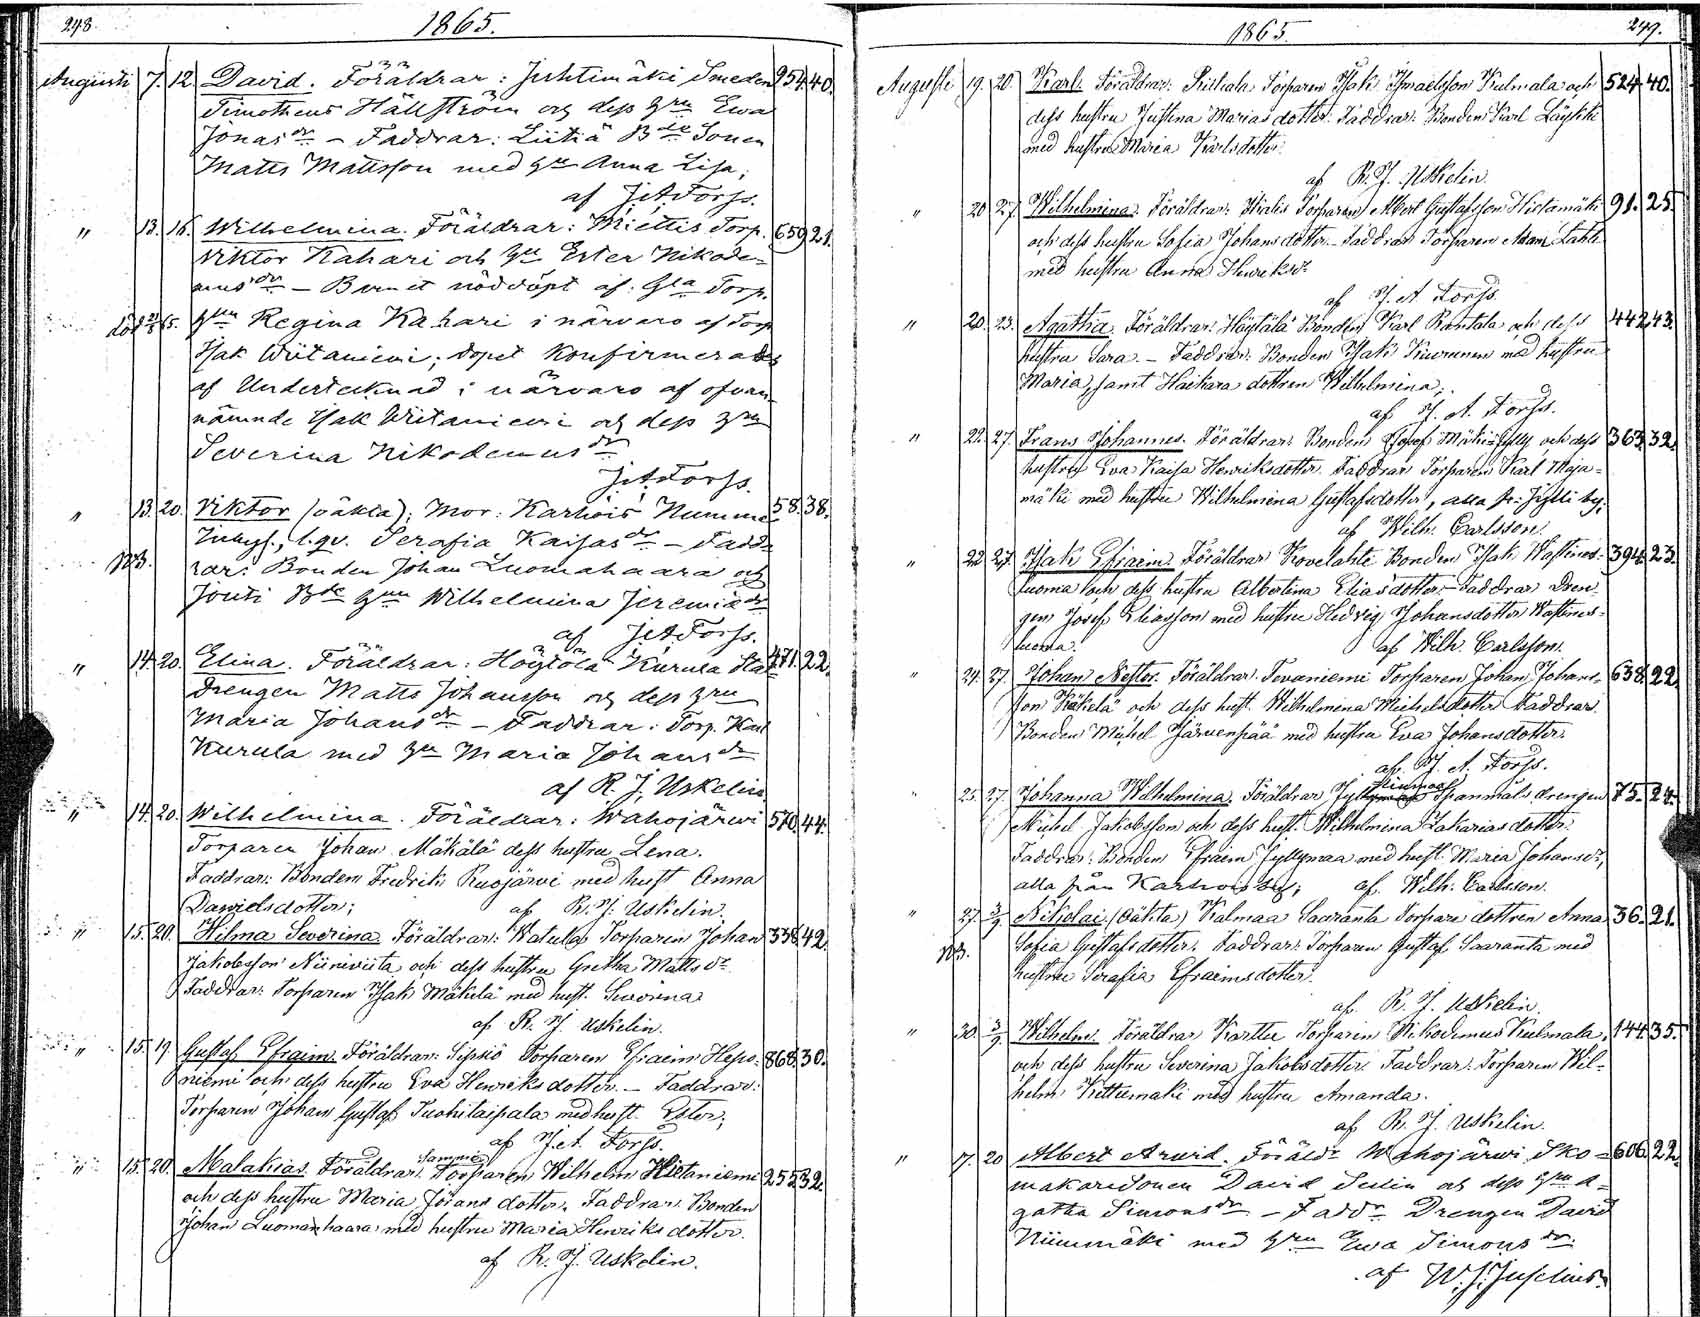 248.
1865.
Augusti 7. 12. David. Föräldrar: Juhtimäki Smeden 954. 40.
Timotheus Hällström och dess Hru Ewa
Jonasdr – Faddrar: Liitiä Bde Sonen
Matts Mattsson med Hru Anna Lisa;
af J.A. Forss.
" 13. 16. Wilhelmina. Föräldrar: Miettis Torp. 659 21.
Viktor Kahari och Hru Ester Nikode-
musdr – Barnet nöddöpt af Gla Torp.
död 65. Hrun Regina Kahari i närvaro af Torp
Isak Wiitaniemi; dopet konfirmerades
af Undertecknad i närvaro af ofvan-
nämnde Isak Wiitaniemi och dess Hru
Severina Nikodemusdr
J.A. Forss.
" 13. 20. Viktor (oäkta); Mor: Karhois Numme 58. 38.
Inhys., l.qv. Serafia Kaisasdr – Fadd-
NB. rar: Bonden Johan Luomahaara och
Jouti Bde Hrun Wilhelmina Jeremiädr
af J.A. Forss.
" 14. 20. Elina. Föräldrar: Höytölä Kurula 471. 22.
Drengen Matts Johansson och dess Hru
Maria Johansdr – Faddrar: Torp. Karl
Kurula med Hru Maria Johansdr
af R. J. Uskelin.
" 14. 20. Wilhelmina. Föräldrar: Wahojärwi 570. 44.
Torparen Johan Mäkälä dess hustru Lena.
Faddrar: Bonden Fredrik Ruojärwi med hust Anna
Danielsdotter; af R. J. Uskelin.
" 15. 20. Hilma Severina. Föräldrar: Katula Torparen Johan 338. 42.
Jakobsson Niiniviita och dess hustru Gretha Mattsdr
Faddrar: Torparen Isak Mäkelä med hust. Severina
af R. J. Uskelin.
" 15. 19. Gustaf Efraim. Föräldrar: Sipsiö Torparen Efraim Hepo- 868. 30.
niemi och dess hustru Eva Henriksdotter. – Faddrar:
Torparen Johan Gustaf Tuohitaipala med hust. Ester;
af J.A. Forss.
Sammi
" 15. 20. Malakias. Föräldrar: Torparen Wilhelm Hietaniemi 255 32.
och dess hustru Maria Göransdotter. Faddrar: Bonden
Johan Luomanhaara med hustru Maria Henriksdotter.
af R. J. Uskelin.
1865.
249.
Augusti 19. 20. Karl. Föräldrar: Torparen Isak Ismaelsson Kulmala och 524. 40.
dess hustru Justina Mariasdotter. Faddrar: Bonden Karl
med hustru Maria Karlsdotter.
af R. J. Uskelin
" 20 27. Wilhelmina. Föräldrar: Torparen Albert Gustafsson Hietamäki 91. 25.
och dess hustru Sofia Johansdotter. – Faddrar Torparen Adam Lahti
med hustru Anna Henriksdr
af J. A. Forss.
" 20. 23. Agatha. Föräldrar: Höytälä Bonden Karl Rantala och dess 442. 43.
hustru Sara. – Faddrar: Bonden Isak Kuvunen med hustru
Maria, samt Haikara dottren Wilhelmina;
af J. A. Forss.
" 22. 27. Frans Johannes. Föräldrar: Bonden Josef Mäki-Jylli och dess 363. 32.
hustru Eva Kaisa Henriksdotter. Faddrar Torparen Karl Maja-
mäki med hustru Wilhelmina Gustafsdotter, alla fr: Jylli by;
af Wilh. Carlsson.
" 22. 27. Isak Efraim. Föräldrar Kovelahti Bonden Isak Wastines- 394. 23.
luoma och dess hustru Albertina Eliasdotter. – Faddrar Dren-
gen Josef Eliasson med hustru Hedvig Johansdotter Wastines-
luoma. af Wilh. Carlsson.
" 24. 27. Johan Nestor. Föräldrar: Tevaniemi Torparen Johan Johans- 638. 22.
son Käkelä och dess hust. Wilhelmina Michelsdotter Faddrar.
Bonden Michel Järvenpää med hustru Eva Johansdotter.
af J. A. Forss.
25. 27. Johanna Wilhelmina. Föräldrar Spanmåls drengen 75. 24.
Michel Jakobsson och dess hust. Wilhelmina Zakariasdotter.
Faddrar: Bonden Efraim Jyllymaa med hust. Maria Johansdr,
alla från Karhois by; af Wilh. Carlsson.
" 27. 3/9 Nikolai. (Oäkta) Kalmaa Saaranta Torpare dottren Anna 36. 21.
NB. Sofia Gustafsdotter. Faddrar: Torparen Gustaf Saaranta med
hustru Serafia Efraimsdotter.
af R. J. Uskelin.
" 30. 3/9 Wilhelm. Föräldrar Karttu Torparen Nikodemus Kulmala, 144. 35.
och dess hustru Severina Jakobsdotter. Faddrar: Torparen Wil-
helm Kettumäki med hustru Amanda.
af R. J. Uskelin.
" 17. 20 Albert Arvid. Föräldr Wahojärwi Sko- 606. 22.
makaredonen David Sulin och dess Hru A-
gatha Simonsdr – Faddr Drengen David
Niinimäki med Hru Ewa Simonsdr.
af W. J. Juselius.